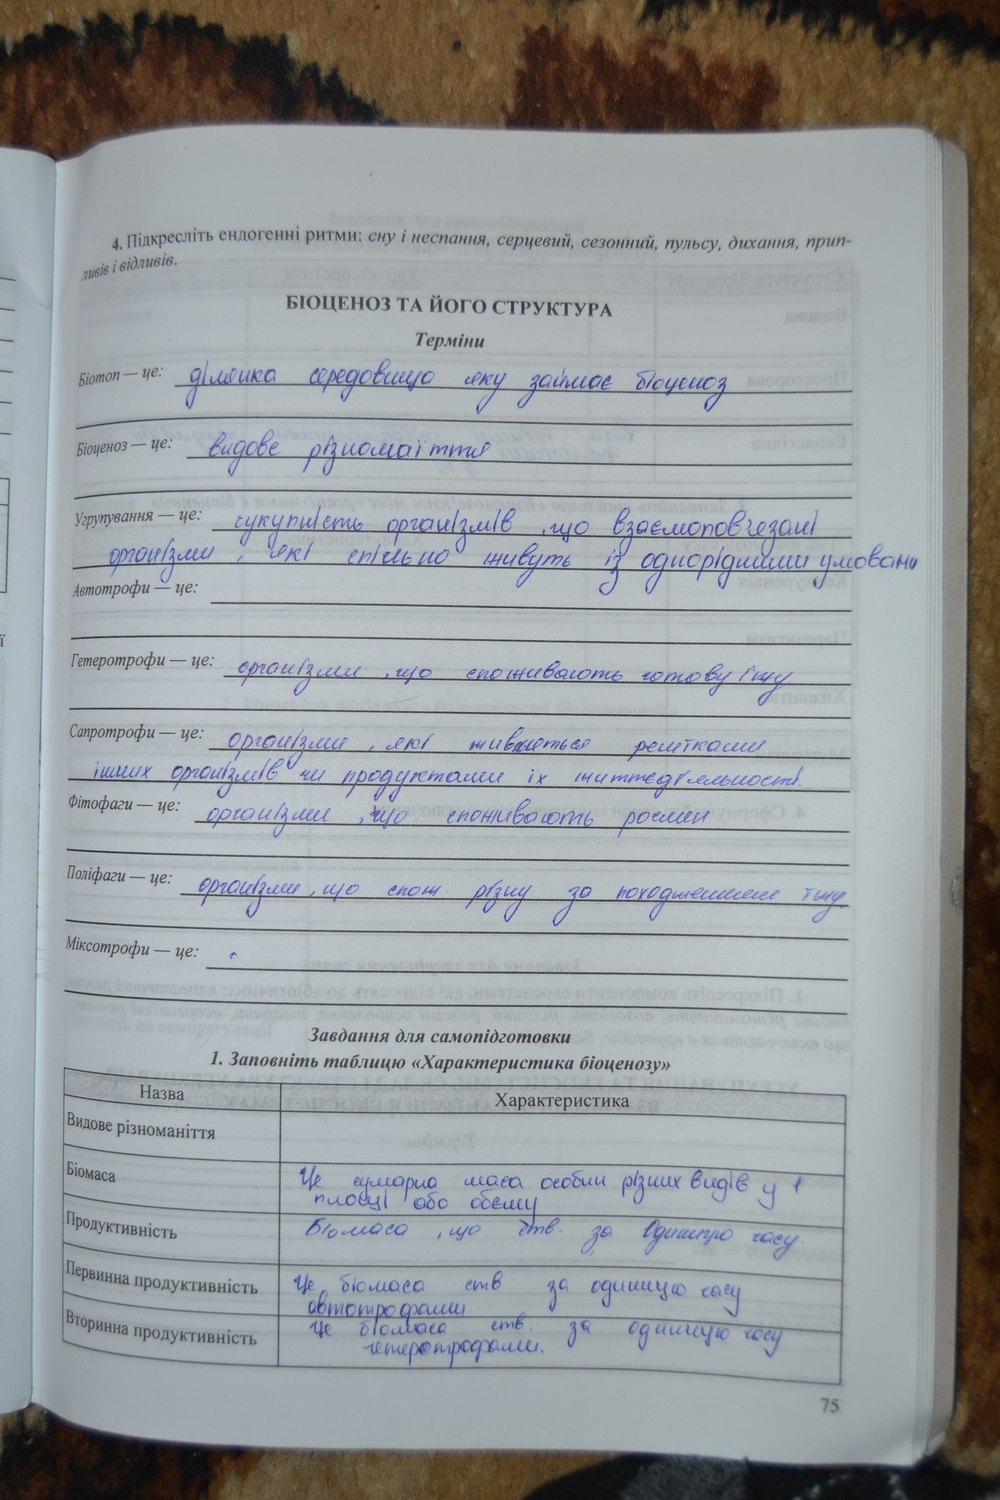 4. Підкресліть ендогенні ритми: сну і неспання, серцевий, сезонний, пульсу, дихання, прип-
ливів і відливів.
БІОЦЕНОЗ ТА ЙОГО СТРУКТУРА
Терміни
Біотоп — це: ділянка середовища яку займає біоценоз
Біоценоз — це: видове різномаїття
Угрупування — це: сукупність організмів, що взаємопов'язані
організми, які спільно живуть із однорідними умовами
Автотрофи — це:
Гетеротрофи — це: організми, що споживають готову їжу
Сапротрофи — це: організми, які живляться рештками
інших організмів чи продуктами їх життєдіяльності.
Фітофаги — це: організми, що споживають рослин
Поліфаги — це: організми, що спож. різну за походженням їжу
Міксотрофи — це:
Завдання для самопідготовки
1. Заповніть таблицю «Характеристика біоценозу»
Назва Характеристика
Видове різноманіття
Біомаса Це сумарна маса особин різних видів у 1
площі або обєму
Продуктивність Біомаса, що ств. за одиницю часу.
Первинна продуктивність Це біомаса ств за одиницю часу
автотрофами
Вторинна продуктивність Це біомаса ств. за одиницю часу
гетеротрофами.
75